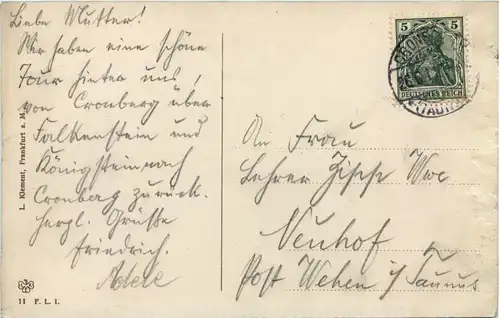 Liebe Mutter!
Wir haben eine schöne
Tour hinter uns,
von Cronberg über
Falkenstein und
Königstein nach
Cronberg zurück.
Herzl. Grüße
Friedrich.
Adele
L. Klement, Frankfurt a. M.
11 P. L. L.
5 5
DEUTSCHES REICH
An Frau
Lehrer
Neuhof
Post Wehen i/Taunus